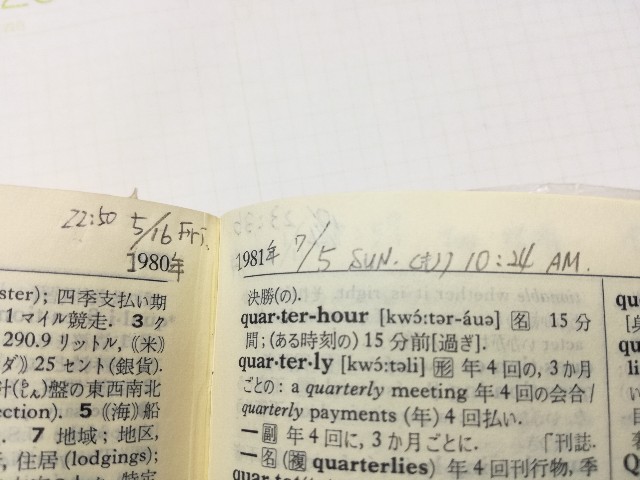 22:50 5/16 Fri.
1980年
ster); 四季支払い期
1 マイル競走. 3 ク
290.9 リットル, 《米》
ダ》 25 セント(銀貨).
計(じん)盤の東西南北
ection). 5 《海》船
7 地域; 地区,
, 住居 (lodgings);
1981年 7/5 SUN. くもり 10:24 AM.
決勝(の).
quar·ter-hour [kwɔ́:tər-áuə] 名 15 分
間; (ある時刻の) 15 分前[過ぎ].
quar·ter·ly [kwɔ́:təli] 形 年 4 回の, 3 か月
ごとの: a quarterly meeting 年 4 回の会合/
quarterly payments (年) 4 回払い.
― 副 年 4 回に, 3 か月ごとに. 「刊誌.
― 名 (複 quarterlies) 年 4 回刊行物, 季
qu
qu